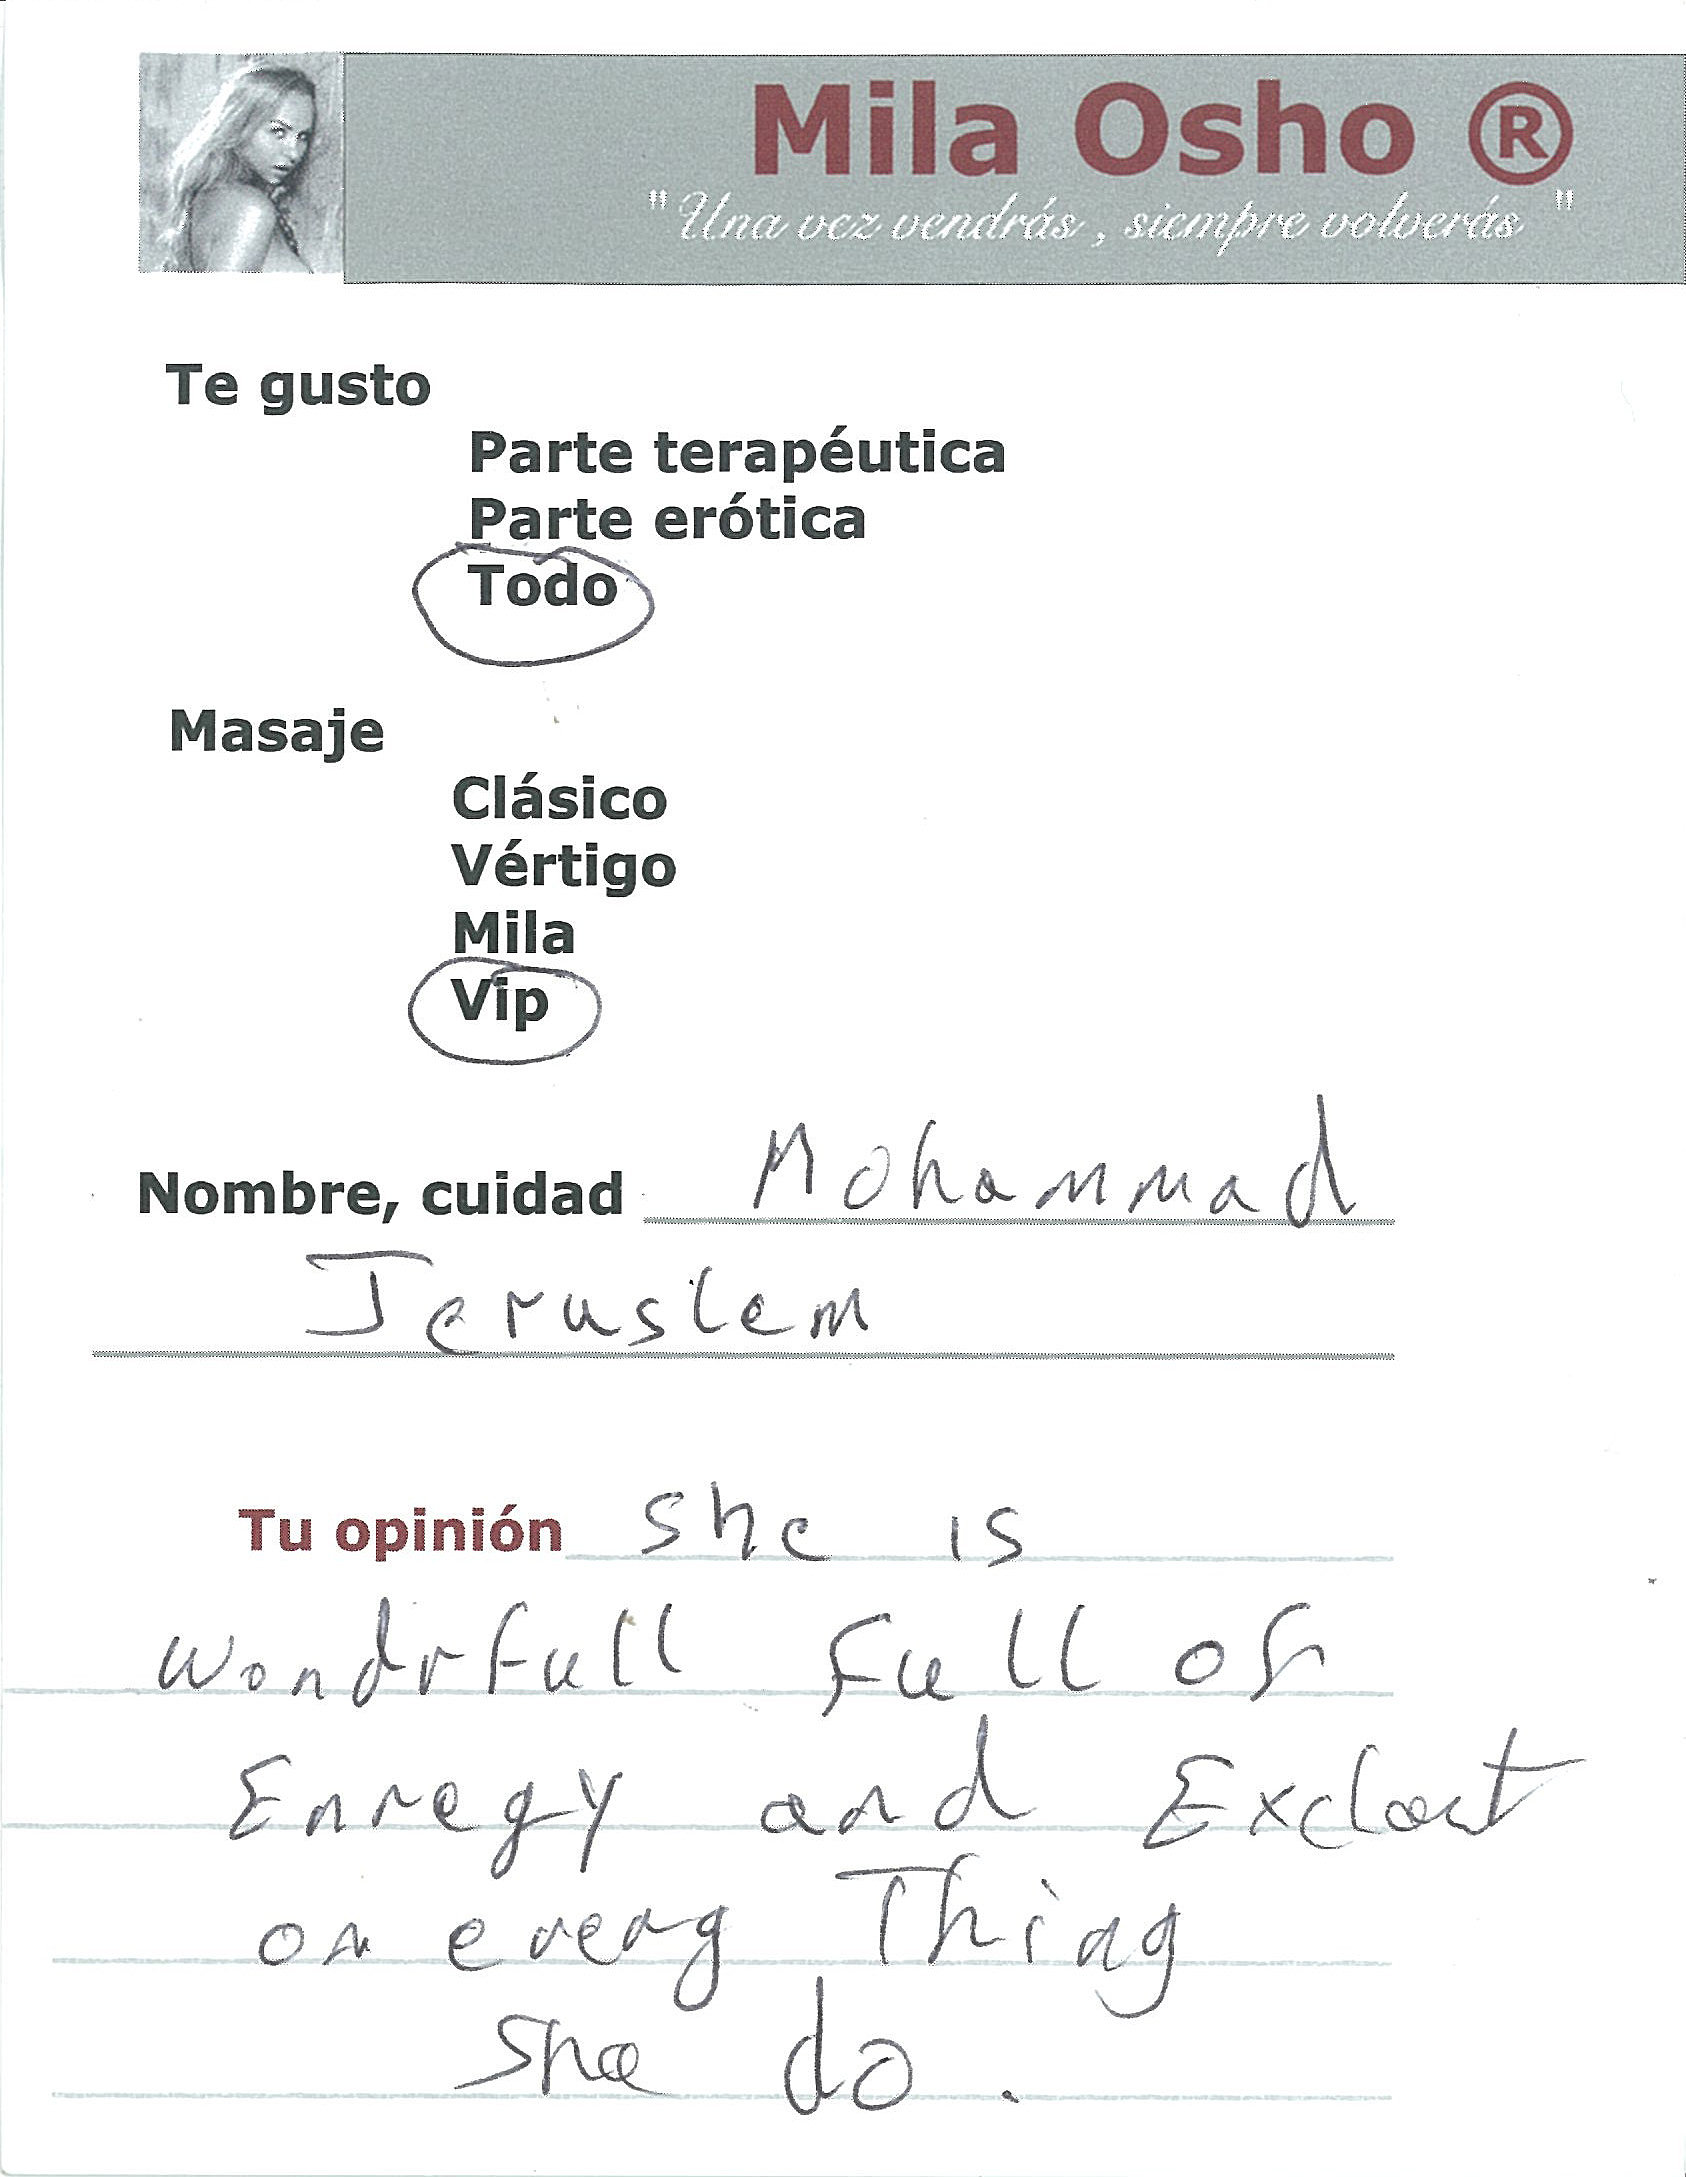 Mila Osho ®
"Una vez vendrás, siempre volverás"
Te gusto
Parte terapéutica
Parte erótica
Todo
Masaje
Clásico
Vértigo
Mila
Vip
Nombre, cuidad Mohammad
Jeruslem
Tu opinión she is
wondrfull full of
Enregy and
on every Thing
She do.